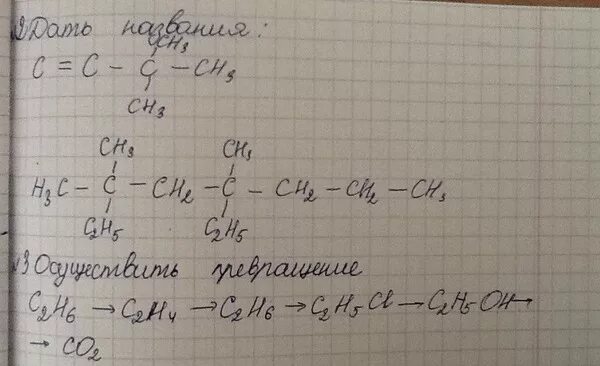 2 Дать названия:
CH3
C = C - C - CH3
CH3
CH3 CH3
H3C - C - CH2 - C - CH2 - CH2 - CH3
C2H5 C2H5
3 Осуществить превращение
C2H6 → C2H4 → C2H6 → C2H5Cl → C2H5OH →
→ CO2